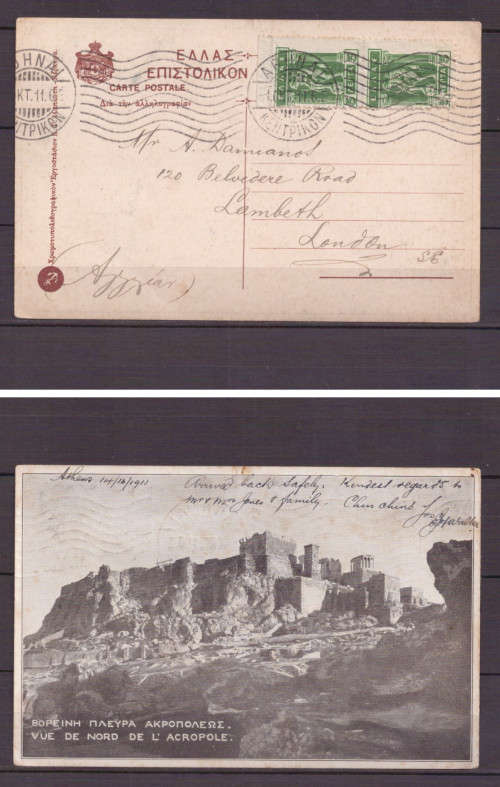 ΕΛΛΑΣ
ΕΠΙΣΤΟΛΙΚΟΝ
CARTE POSTALE
Διὰ τὴν ἀλληλογραφίαν
ΚΕΝΤΡΙΚΟΝ
ΕΛΛΑΣ
ΚΕΝΤΡΙΚΟΝ
Mr A. Damianos
120 Belvedere Road
Lambeth
London
SE
(Αγγλίαν)
Athens 14/10/1911
Arrived back safely. Kindest regards to
Mr & Mrs Jones & family.
ΒΟΡΕΙΝΗ ΠΛΕΥΡΑ ΑΚΡΟΠΟΛΕΩΣ.
VUE DE NORD DE L' ACROPOLE.